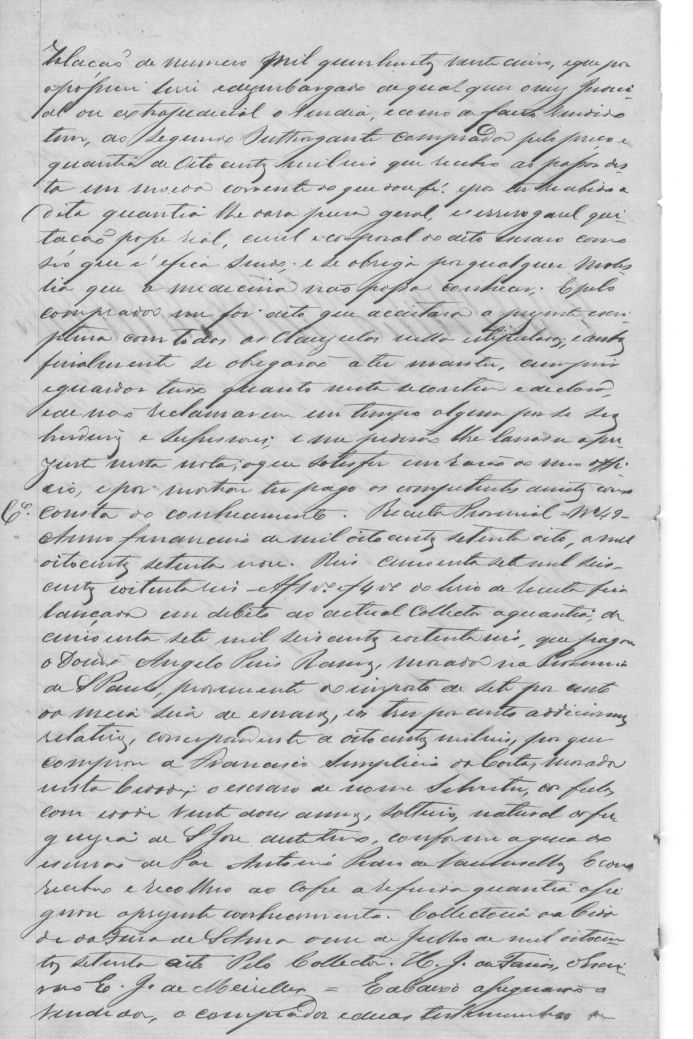 de numero mil quinhentos vinte cinco, e que por
o possuir livre e desembargado de qual quer onus Judici-
al ou extrajudicial o vendia, e como de facto vendido
tem, ao segundo Outhorgante comprador pelo preço e
quantia de Oito centos mil reis que recebeo ao passar des-
ta em moeda corrente do que dou fé: e por ter recebido a
dita quantia lhe dava plena geral, e irrevogavel qui-
tação real, civil e corporal do dito escravo como
seo que é fica sendo; e se obriga por qualquer moles-
tia que a medicina não possa conhecer. E pelo
comprador me foi dito que aceitava a presente escri-
ptura com todas as clausulas nella estipuladas; e ambos
finalmente se obrigarão a ter manter, cumprir
e guardar tudo quanto nesta se contem e declara,
e de não reclamarem em tempo algum por se seus
herdeiros e sucessores; e me pedirão lhe lavrasse a pre-
zente nesta nota; o que satisfiz em razão do meu Offi-
cio, e por mostrar ter pago os competentes direitos como
Cto. consta do conhecimento. Receita Provincial - Nº 49 -
Anno financeiro de mil oito centos setenta oito, a mil
oitocentos setenta nove. Reis cincoenta sete mil seis-
centos e oitenta reis - A f 1 v. e f 4 v. do livro de receita fica
lançada em debito ao actual Collector a quantia de
cincoenta sete mil seis centos e oitenta reis, que pagou
o Doutor Angelo Pires Ramos, morador na Provincia
de S Paulo, proveniente do imposto de sete por cento
da meia siza de escravos, e os tres por cento addicionaes
relativos, correspondente a oito centos mil reis, por que
comprou a Francisco Simplicio da Costa, morador
nesta Cidade; o escravo de nome Silvestre, cor fula,
com idade vinte dous annos, solteiro, natural da fre-
guezia de S José conforme a guia do
escrivão de Paz Antonio de Vasconcellos E como
recebeo e recolheo ao Cofre a referida quantia assi-
gnou o presente conhecimento. Collectoria da Cida-
de da Feira de S Anna onze de Julho de mil oitocen-
tos setenta oito Pelo Collector. H. J. de Farias, o Escri-
vão E. J. de Meirelles = E abaixo assignarão o
vendedor, o comprador e duas testemunhas